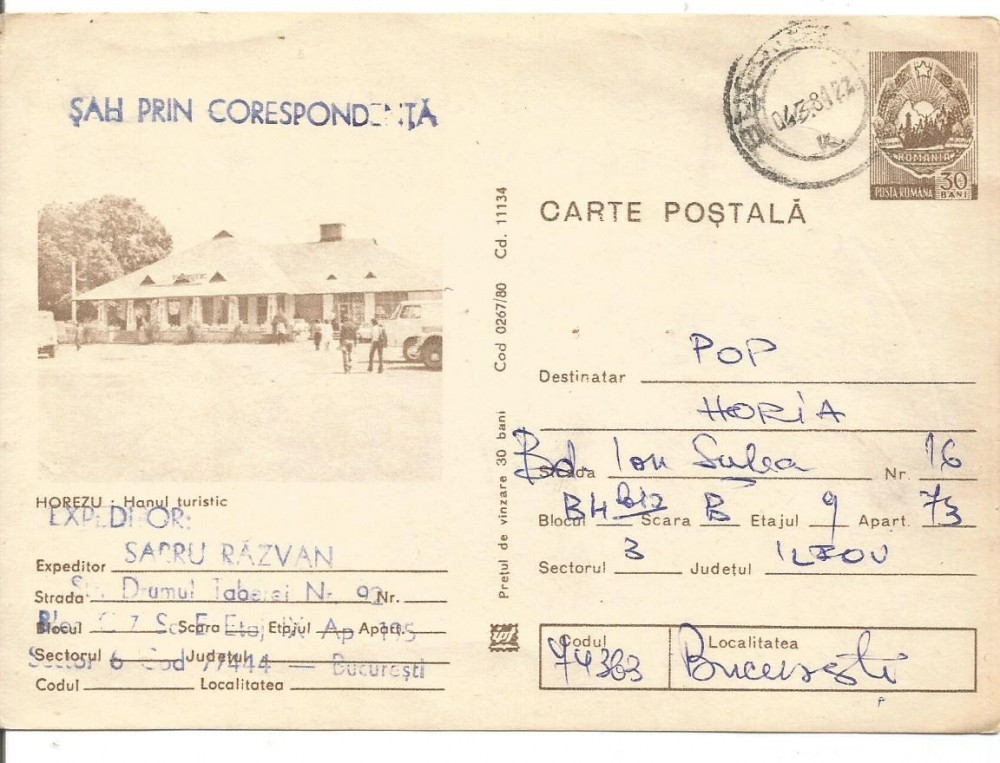 ŞAH PRIN CORESPONDENŢĂ
04.3.81.22
ROMÂNIA
POSTA ROMÂNA 30 BANI
CARTE POŞTALĂ
HOREZU · Hanul turistic
EXPEDITOR:
Expeditor SABRU RĂZVAN
Strada Drumul Taberei Nr. 92 Nr.
Blocul C 7 Scara Sc E Etajul Etaj IV Apart. Ap
Sectorul Sector 6 Judeţul Cod 77444 — Bucureşti
Codul Localitatea
Preţul de vînzare 30 bani Cod 0267/80 Cd. 11134
Destinatar POP
HORIA
Strada Bd. Ion Şulea Nr. 16
Blocul B4 Scara B Etajul 9 Apart. 73
Sectorul 3 Judeţul ILFOV
Codul 74363 Localitatea Bucureşti